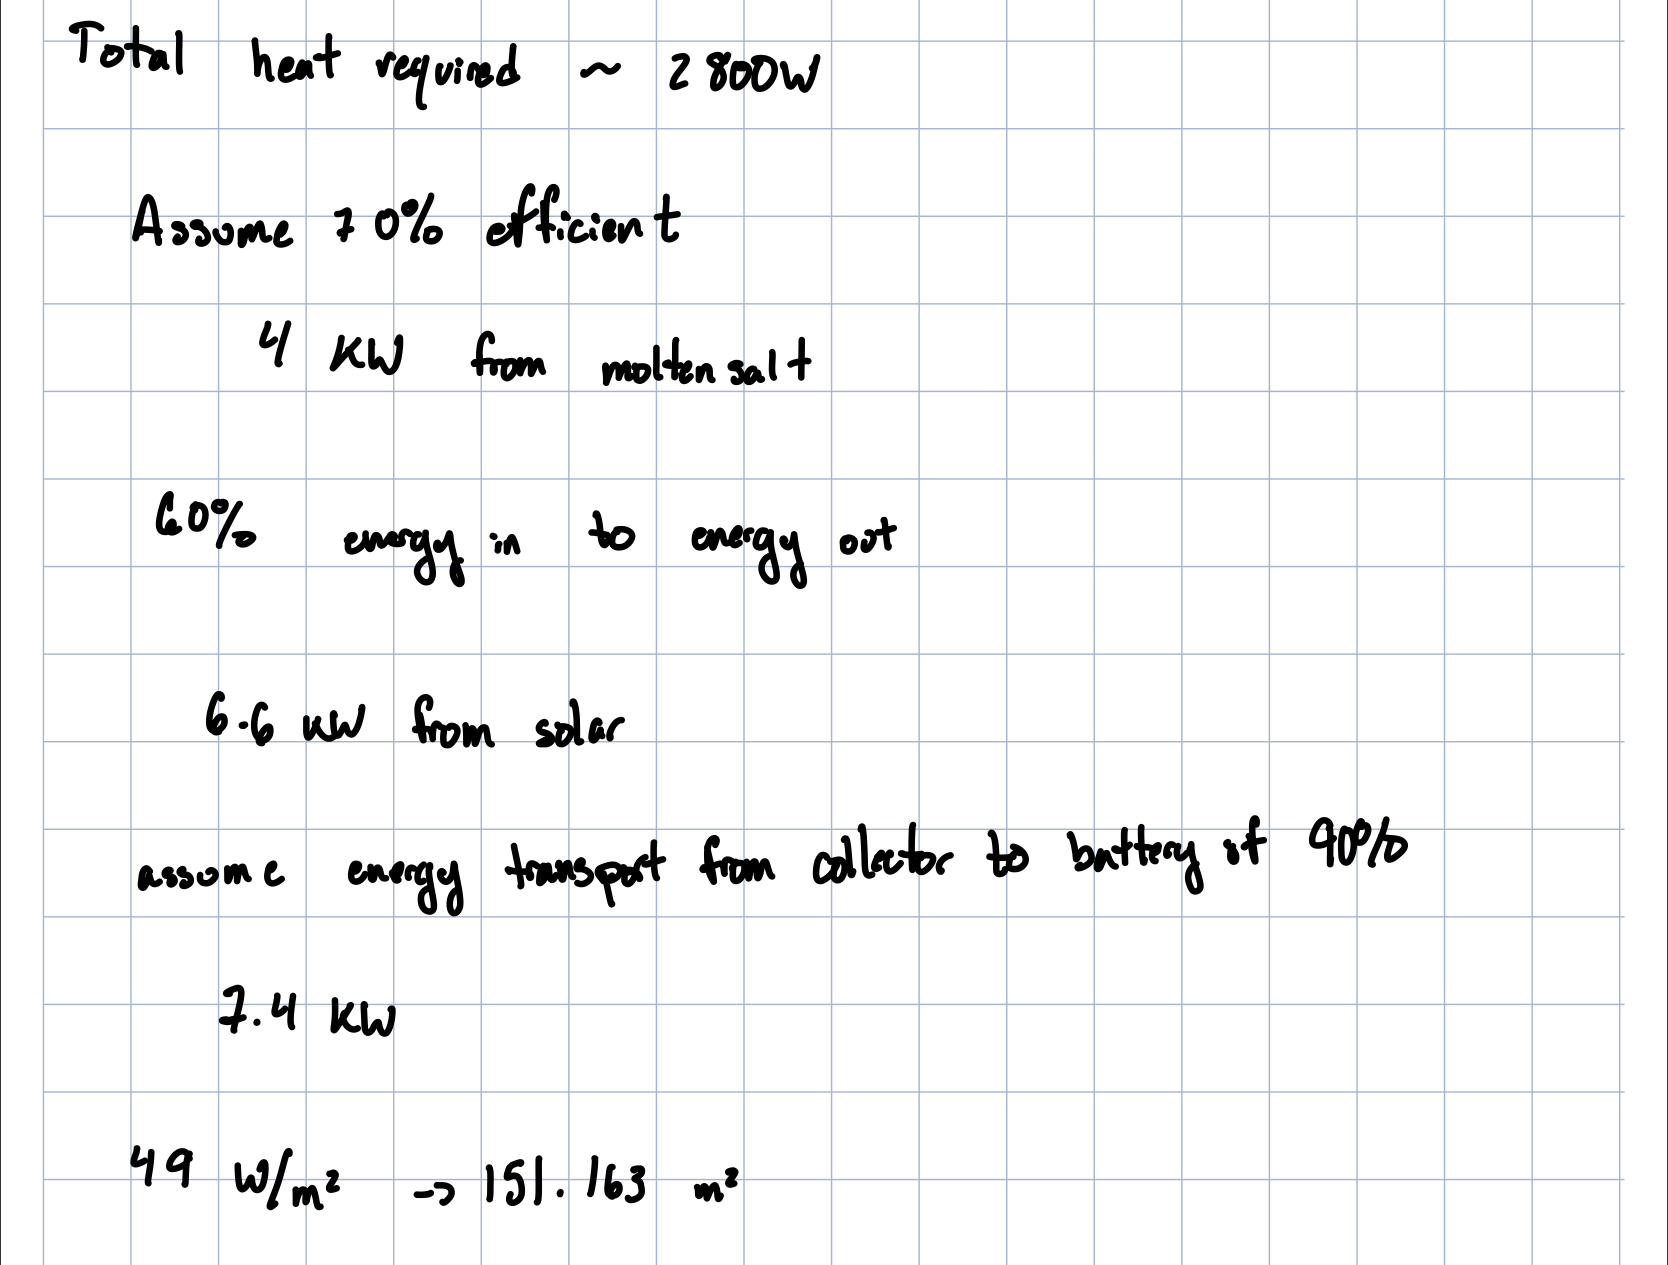 Total heat required ~ 2800W
Assume 70% efficient
4 KW from molten salt
60% energy in to energy out
6.6 KW from solar
assume energy transport from collector to battery of 90%
7.4 KW
49 W/m² -> 151.163 m²